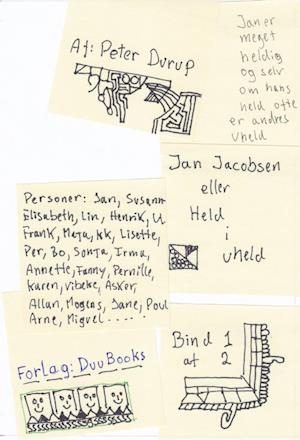 Af: Peter Durup
Jan er
meget
heldig
og selv
om hans
held ofte
er andres
uheld
Jan Jacobsen
eller
Held
i
uheld
Personer: Jan, Susann
Elisabeth, Lin, Henrik, U
Frank, Maja, kk, Lisette,
Per, Bo, Sonja, Irma,
Annette, Fanny, Pernille,
Karen, Vibeke, Asker,
Allan, Mogens, Jane, Poul
Arne, Miguel.....
Forlag: DuuBooks
Bind 1
af 2